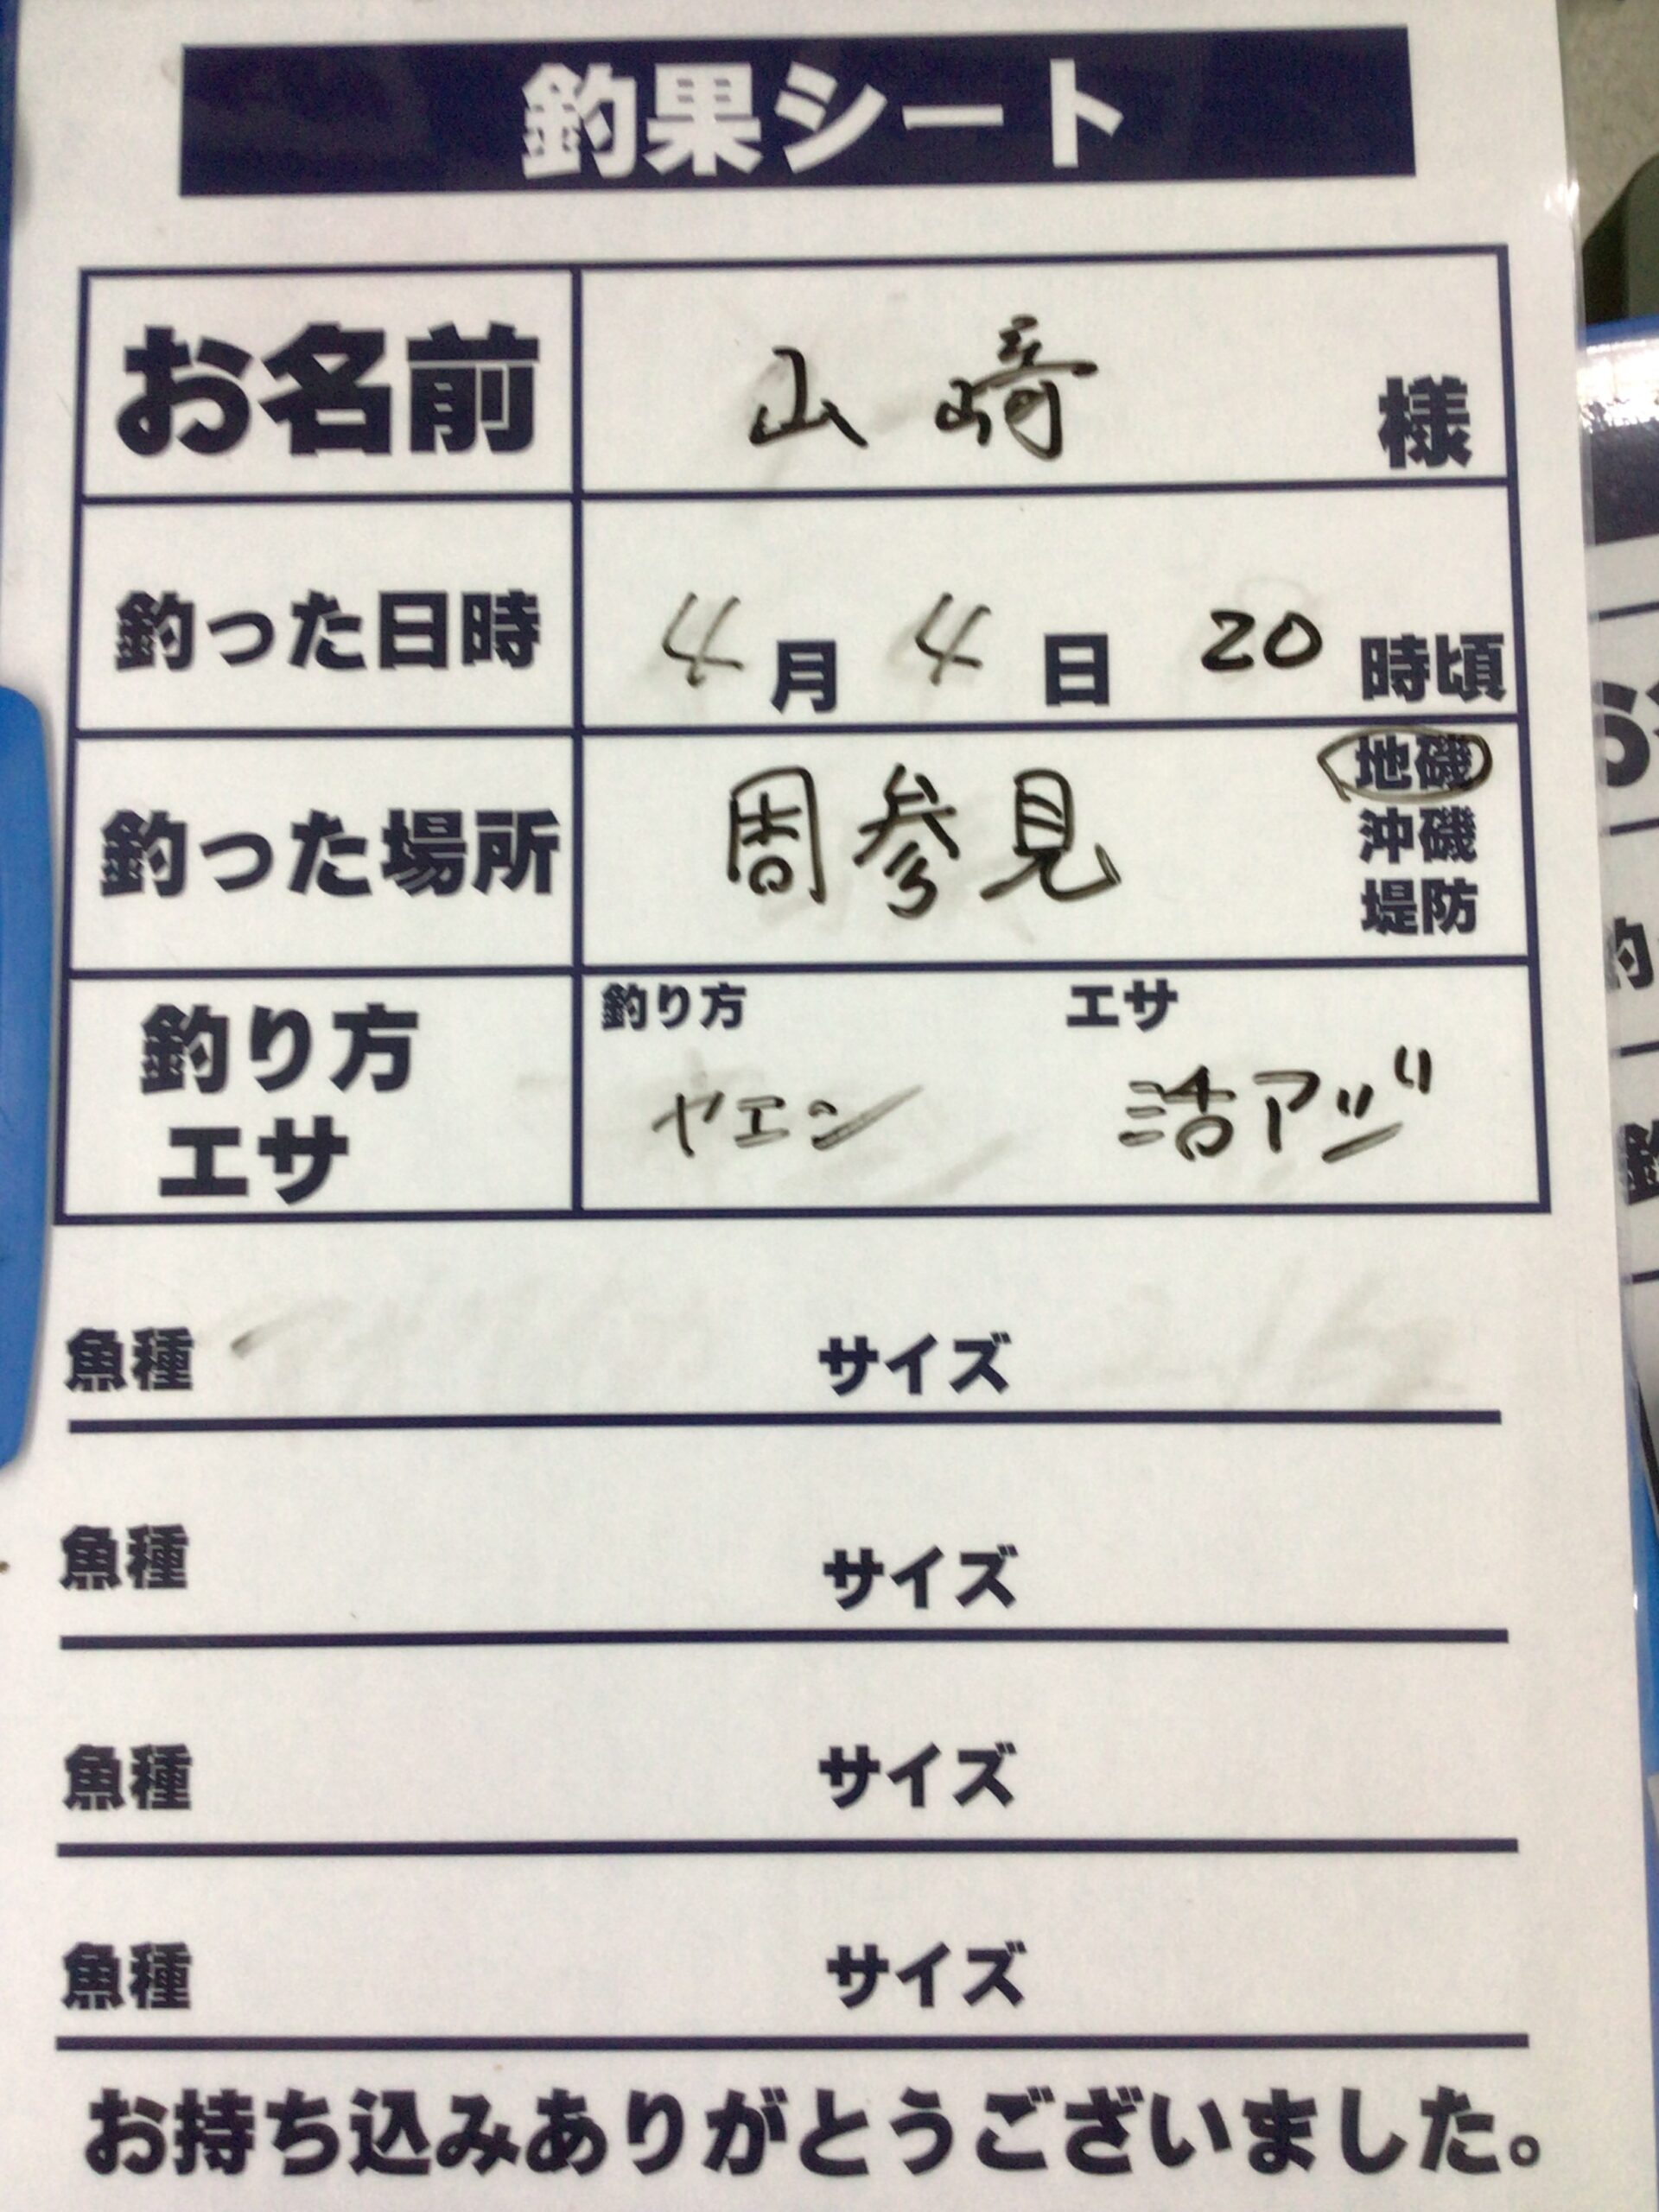 釣果シート
お名前 山﨑 様
釣った日時 4月4日 20時頃
釣った場所 周参見 地磯
沖磯
堤防
釣り方 エサ
釣り方 エサ ヤエン 活アジ
魚種 サイズ
魚種 サイズ
魚種 サイズ
魚種 サイズ
お持ち込みありがとうございました。